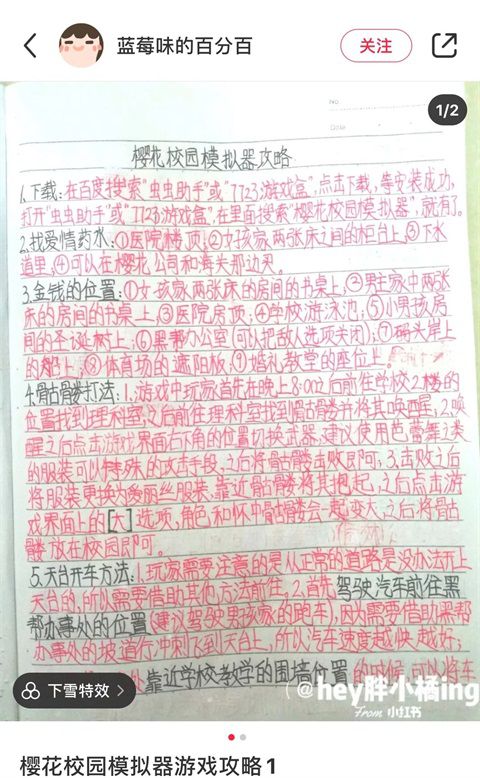 蓝莓味的百分百
关注
No.
Date
1/2
樱花校园模拟器攻略
1.下载:在百度搜索"虫虫助手"或"7723游戏盒",点击下载,等安装成功,
打开"虫虫助手"或"7723游戏盒",在里面搜索"樱花校园模拟器",就有了。
2.找爱情药水:①医院楼顶;②女孩家两张床之间的柜台上,③下水
道里,④可以在樱花公司和海头那边买。
3.金钱的位置:①女孩家两张床的房间的书桌上,②男主家中两张
床的房间的书桌上,③医院房顶;④学校游泳池;⑤小男孩房
间的圣诞树上;⑥黑帮办公室(可以把敌人选项关闭);⑦码头岸上
的船上;⑧体育场的遮阳板;⑨婚礼教堂的座位上。
4.骨骷髅打法:1.游戏中玩家首先在晚上8:00之后前往学校2楼的
位置找到理科室,之后前往理科室找到骨骷髅并将其唤醒;2.唤
醒之后点击游戏界面右下角的位置切换武器,建议使用芭蕾舞之类
的服装可以特殊的攻击手段,之后将骨骷髅击败即可;3.击败之后
将服装更换为爱丽丝服装,靠近骨骷髅将其抱起,之后点击游
戏界面上的[大]选项,角色和怀中骨骷髅会一起变大,之后将骨骷
髅放在校园即可。
5.天台开车方法:1.玩家需要注意的是从正常的道路是没办法开上
天台的,所以需要借助其他方法前往。2.首先驾驶汽车前往黑
帮办事处的位置(建议驾驶男孩家的跑车),因为需要借助黑帮
办事处的坡道行冲刺飞到天台上,所以汽车速度越快越好;
靠近学校教学的围墙位置的时候,可以将车
下雪特效
@hey胖小橘ing
From 小红书
樱花校园模拟器游戏攻略1